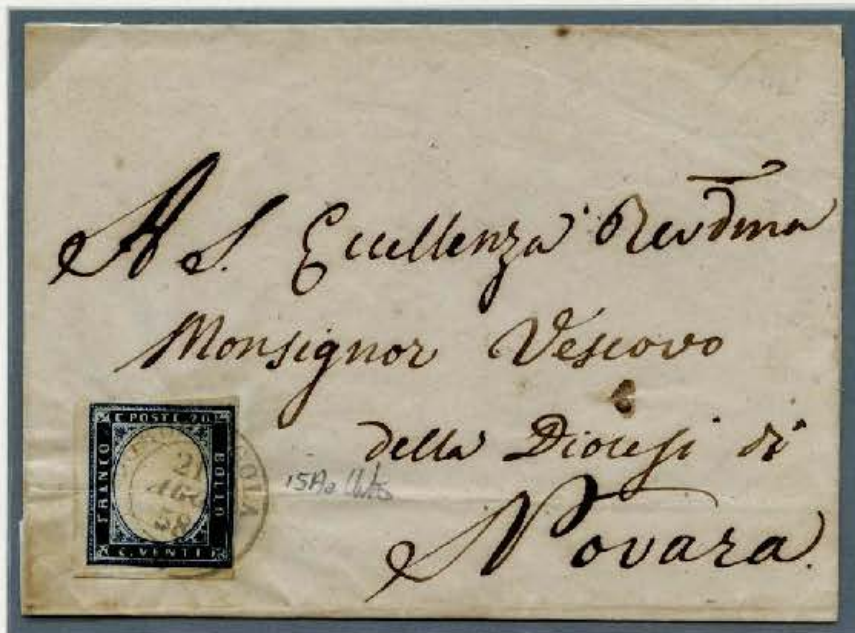 A S. Eccellenza Revdma
Monsignor Vescovo
della Diocesi di
Novara.
C. POSTE 20
FRANCO
BOLLO
C. VENTI
21
AGO
58